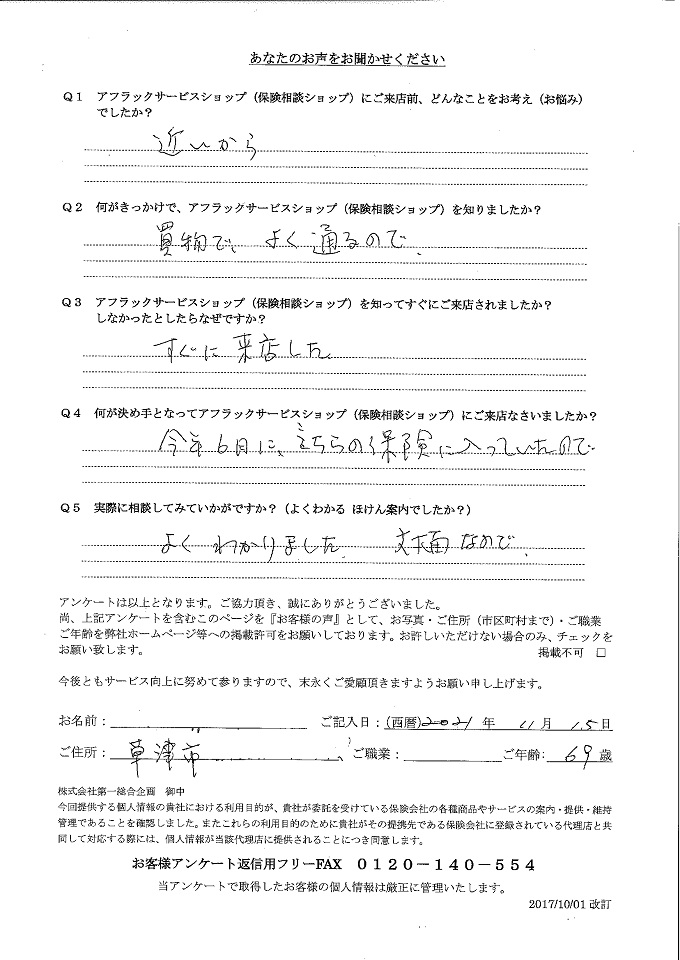 あなたのお声をお聞かせください
Q1 アフラックサービスショップ(保険相談ショップ)にご来店前、どんなことをお考え(お悩み)
でしたか?
近いから
Q2 何がきっかけで、アフラックサービスショップ(保険相談ショップ)を知りましたか?
買物で、よく通るので.
Q3 アフラックサービスショップ(保険相談ショップ)を知ってすぐにご来店されましたか?
しなかったとしたらなぜですか?
すぐに来店した
Q4 何が決め手となってアフラックサービスショップ(保険相談ショップ)にご来店なさいましたか?
今年6月に、こちらの保険に入っていたので
Q5 実際に相談してみていかがですか?(よくわかる ほけん案内でしたか?)
よくわかりました. なので.
アンケートは以上となります。ご協力頂き、誠にありがとうございました。
尚、上記アンケートを含むこのページを『お客様の声』として、お写真・ご住所(市区町村まで)・ご職業
ご年齢を弊社ホームページ等への掲載許可をお願いしております。お許しいただけない場合のみ、チェックを
お願い致します。 掲載不可 □
今後ともサービス向上に努めて参りますので、末永くご愛顧頂きますようお願い申し上げます。
お名前: ご記入日:(西暦)2021 年 11月 15日
ご住所: 草津市 ご職業: ご年齢: 69歳
株式会社第一総合企画 御中
今回提供する個人情報の貴社における利用目的が、貴社が委託を受けている保険会社の各種商品やサービスの案内・提供・維持
管理であることを確認しました。またこれらの利用目的のために貴社がその提携先である保険会社に登録されている代理店と共
同して対応する際には、個人情報が当該代理店に提供されることにつき同意します。
お客様アンケート返信用フリーFAX 0120-140-554
当アンケートで取得したお客様の個人情報は厳正に管理いたします。
2017/10/01 改訂